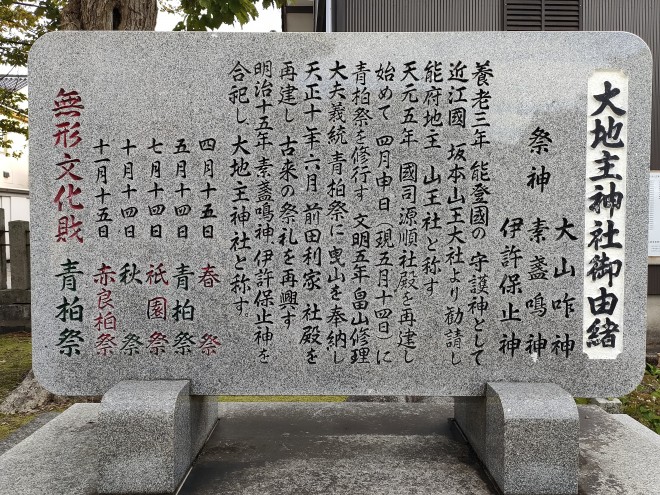 大地主神社御由緒
大山咋神
祭神 素盞鳴神
伊許保止神
養老三年 能登國の 守護神として
近江國 坂本山王大社より 勧請し
能府地主 山王社と称す
天元五年 國司源順社殿を再建し
始めて 四月申日(現五月十四日)に
青柏祭を修行す 文明五年畠山修理
大夫義統 青柏祭に 曳山を 奉納し
天正十年六月 前田利家 社殿を
再建し 古来の祭礼を再興す
明治十五年 素盞鳴神、伊許保止神を
合祀し 大地主神社と称す。
四月十五日 春祭
五月十四日 青柏祭
七月十四日 祇園祭
十月十四日 秋祭
十一月十五日 赤良柏祭
無形文化財 青柏祭